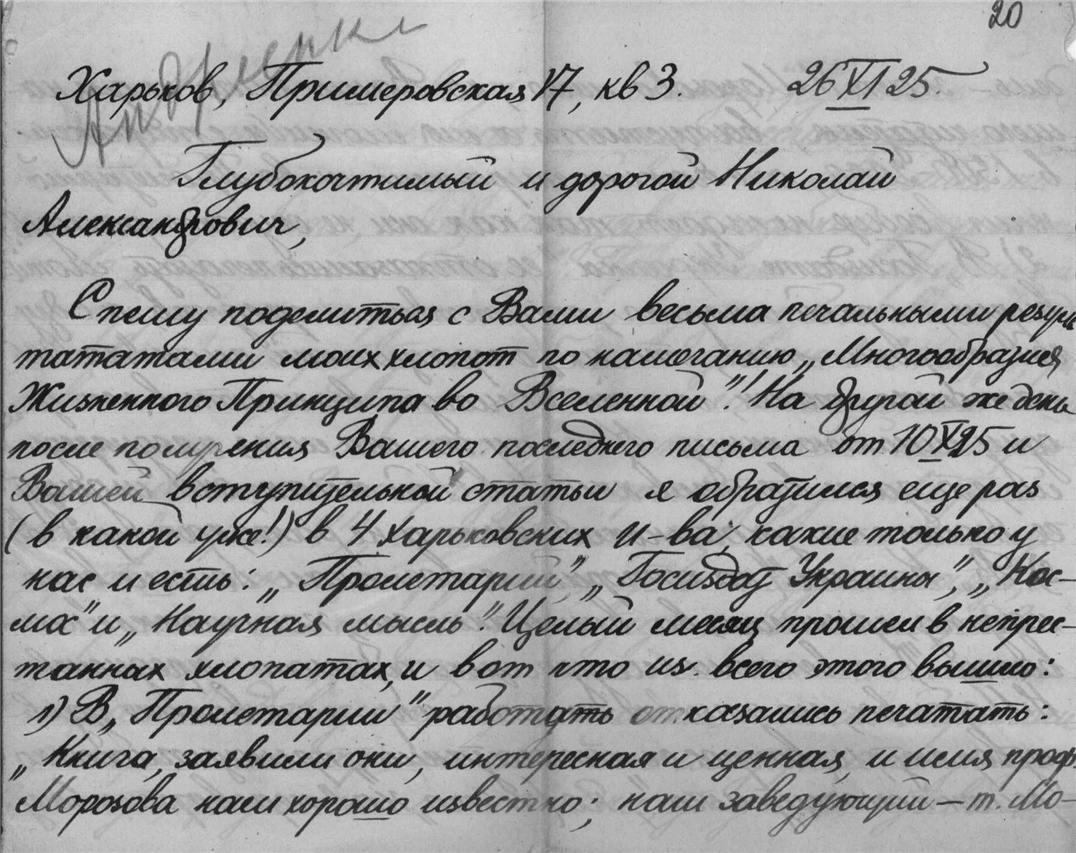 20
Андреенко
Харьков, Примеровская 17, кв 3. 26 XI 25.
Глубокочтимый и дорогой Николай
Александрович,
Спешу поделиться с Вами весьма печальными резуль
татами моих хлопот по напечатанию „Многообразия
Жизненного Принципа во Вселенной"! На другой же день
после получения Вашего последнего письма от 10 X 25 и
Вашей вступительной статьи я обратился еще раз
(в какой уже!) в 4 харьковских и-ва, какие только у
нас и есть: „Пролетарий", „Госиздат Украины", „Кос-
мос" и „Научная мысль". Целый месяц прошел в непрес-
танных хлопотах, и вот что из всего этого вышло:
1) В „Пролетарии" работать отказались печатать:
„Книга, заявили они, интересная и ценная, и имя проф.
Морозова нам хорошо известно; наш заведующий – т. Мо-